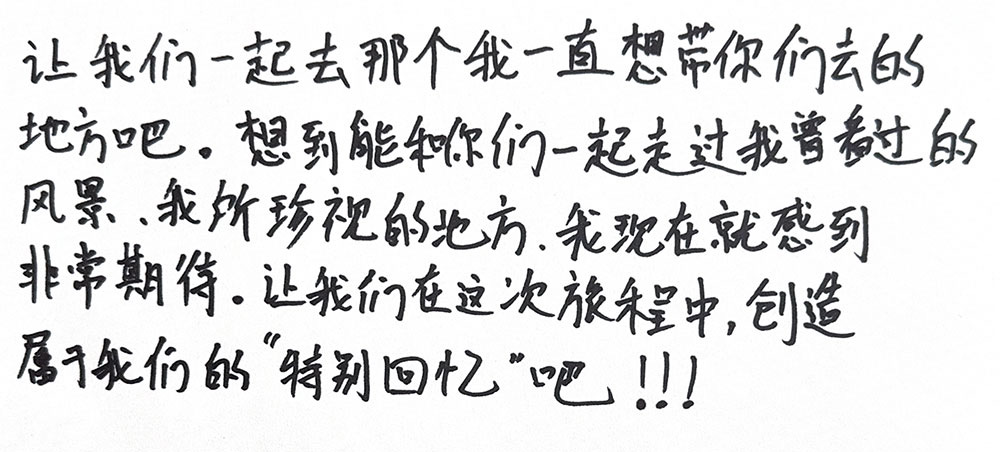 让我们一起去那个我一直想带你们去的
地方吧。想到能和你们一起走过我曾看过的
风景、我所珍视的地方、我现在就感到
非常期待。让我们在这次旅程中,创造
属于我们的“特别回忆”吧!!!